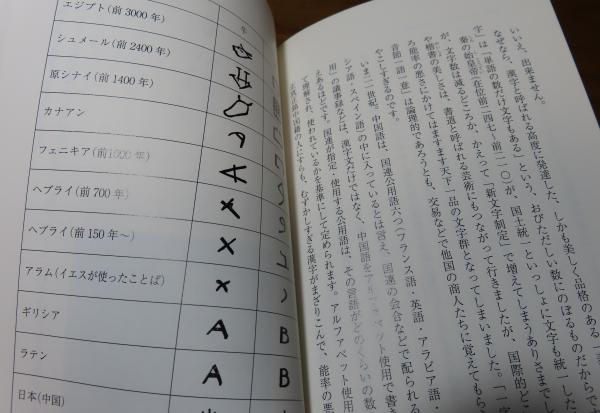 いいえ、出来ません。
なぜなら、漢字と呼ばれる高度に発達した、しかも美しく品格のある「
字」は「単語の数だけ文字もある」という、おびただしい数にのぼるものだからで
秦の始皇帝(在位前二四七〜前二一〇)が、国土統一といっしょに文字も統一した
が、文字数は減るどころか、かえって「新文字制定」で増えてしまうありさまでし
や楷書の美しさは、書道と呼ばれる芸術にもつながって行きましたが、国際的ど
ろ能率の悪さにかけてはますます天下一品の文字群となってしまいました。「一字
音節一語一意」は論理的であろうとも、交易などで他国の商人たちに覚えてもら
やこしすぎるのです。
いま二一世紀、中国語は、国連公用語六つ(フランス語・英語・アラビア語・
シア語・スペイン語)の中に入っているとは言え、国連の会合などで配られる
用」の議事録などは、漢字文だけではなく、中国語をアルファベット使用で書
えあるほどです。国連が指定・使用する公用語は、その言語がどのくらいの数
て理解され、使われているかを基準にして定められます。アルファベット使用
の人にすらも、むずかしすぎる漢字がまざりこんで、能率の悪
牛
エジプト(前3000年)
シュメール(前2400年)
原シナイ(前1400年)
カナアン
フェニキア(前1000年)
ヘブライ(前700年)
ヘブライ(前150年〜)
アラム(イエスが使ったことば)
ギリシア A B
ラテン A B
日本(中国)